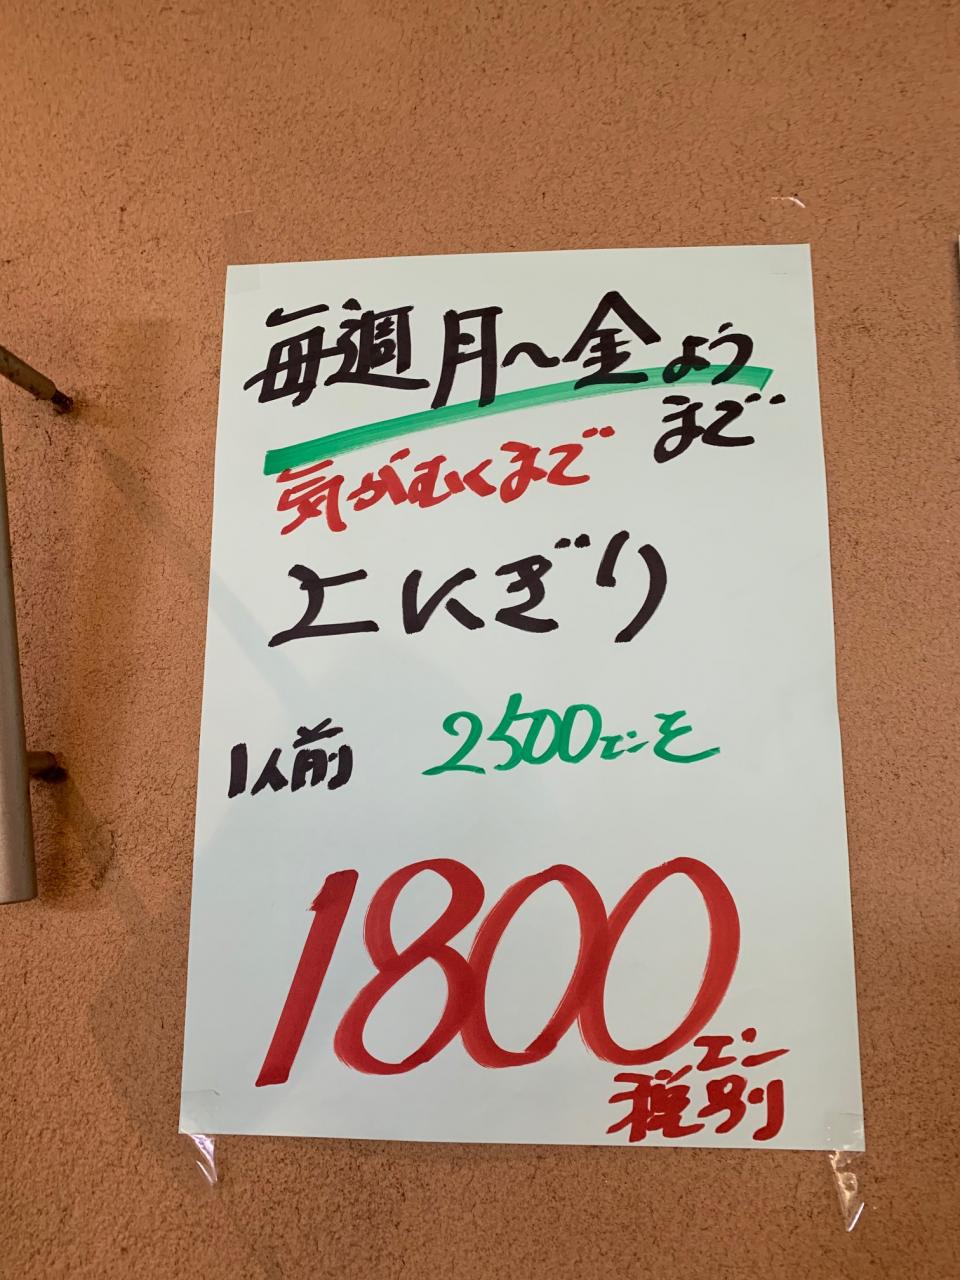 毎週月〜金よう
まで
気がむくまで
上にぎり
1人前 2500エンを
1800エン
税別